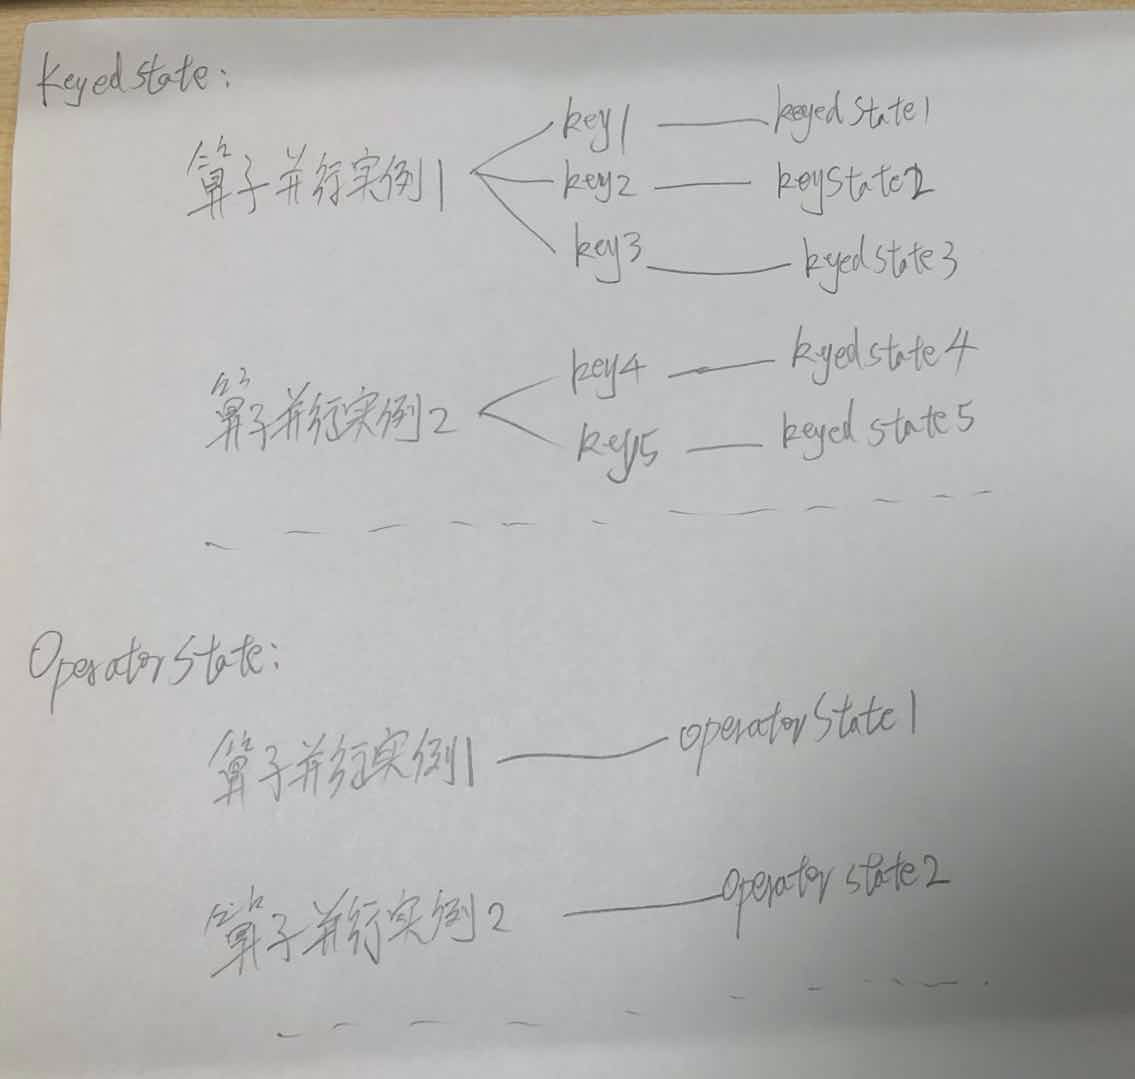 keyed state:
算子并行实例1
key1 keyed state1
key2 keyState2
key3 keyed state3
算子并行实例2
key4 keyed state4
key5 keyed state5
Operator State:
算子并行实例1 operator State1
算子并行实例2 operator state2